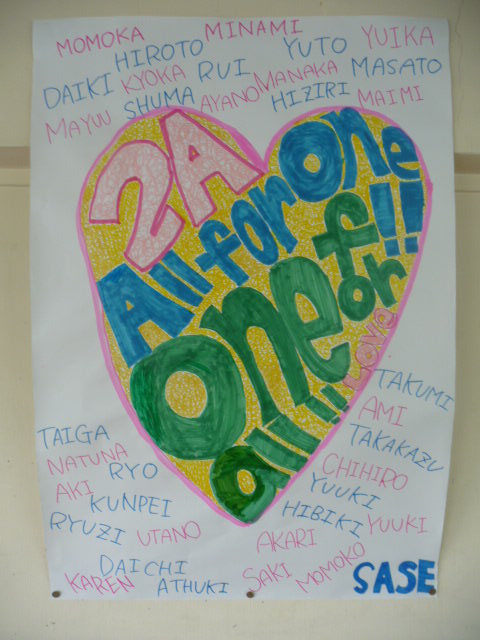 MOMOKA MINAMI
HIROTO YUTO YUIKA
DAIKI KYOKA RUI MANAKA MASATO
SHUMA AYANO HIZIRI MAIMI
MAYUU
2A
All for one!!
one for
all!!!
LOVE
TAKUMI
AMI
TAIGA TAKAKAZU
NATUNA RYO CHIHIRO
AKI YUUKI
KUNPEI HIBIKI YUUKI
RYUZI UTANO
AKARI
DAICHI SAKI MOMOKO
KAREN ATHUKI SASE